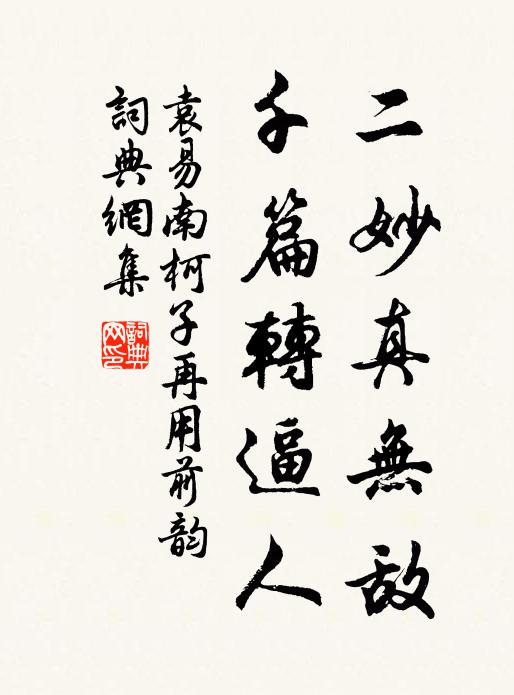 二妙真無敵
千篇轉逼人
袁易南柯子再用前韵
詞典網集
詞典網印